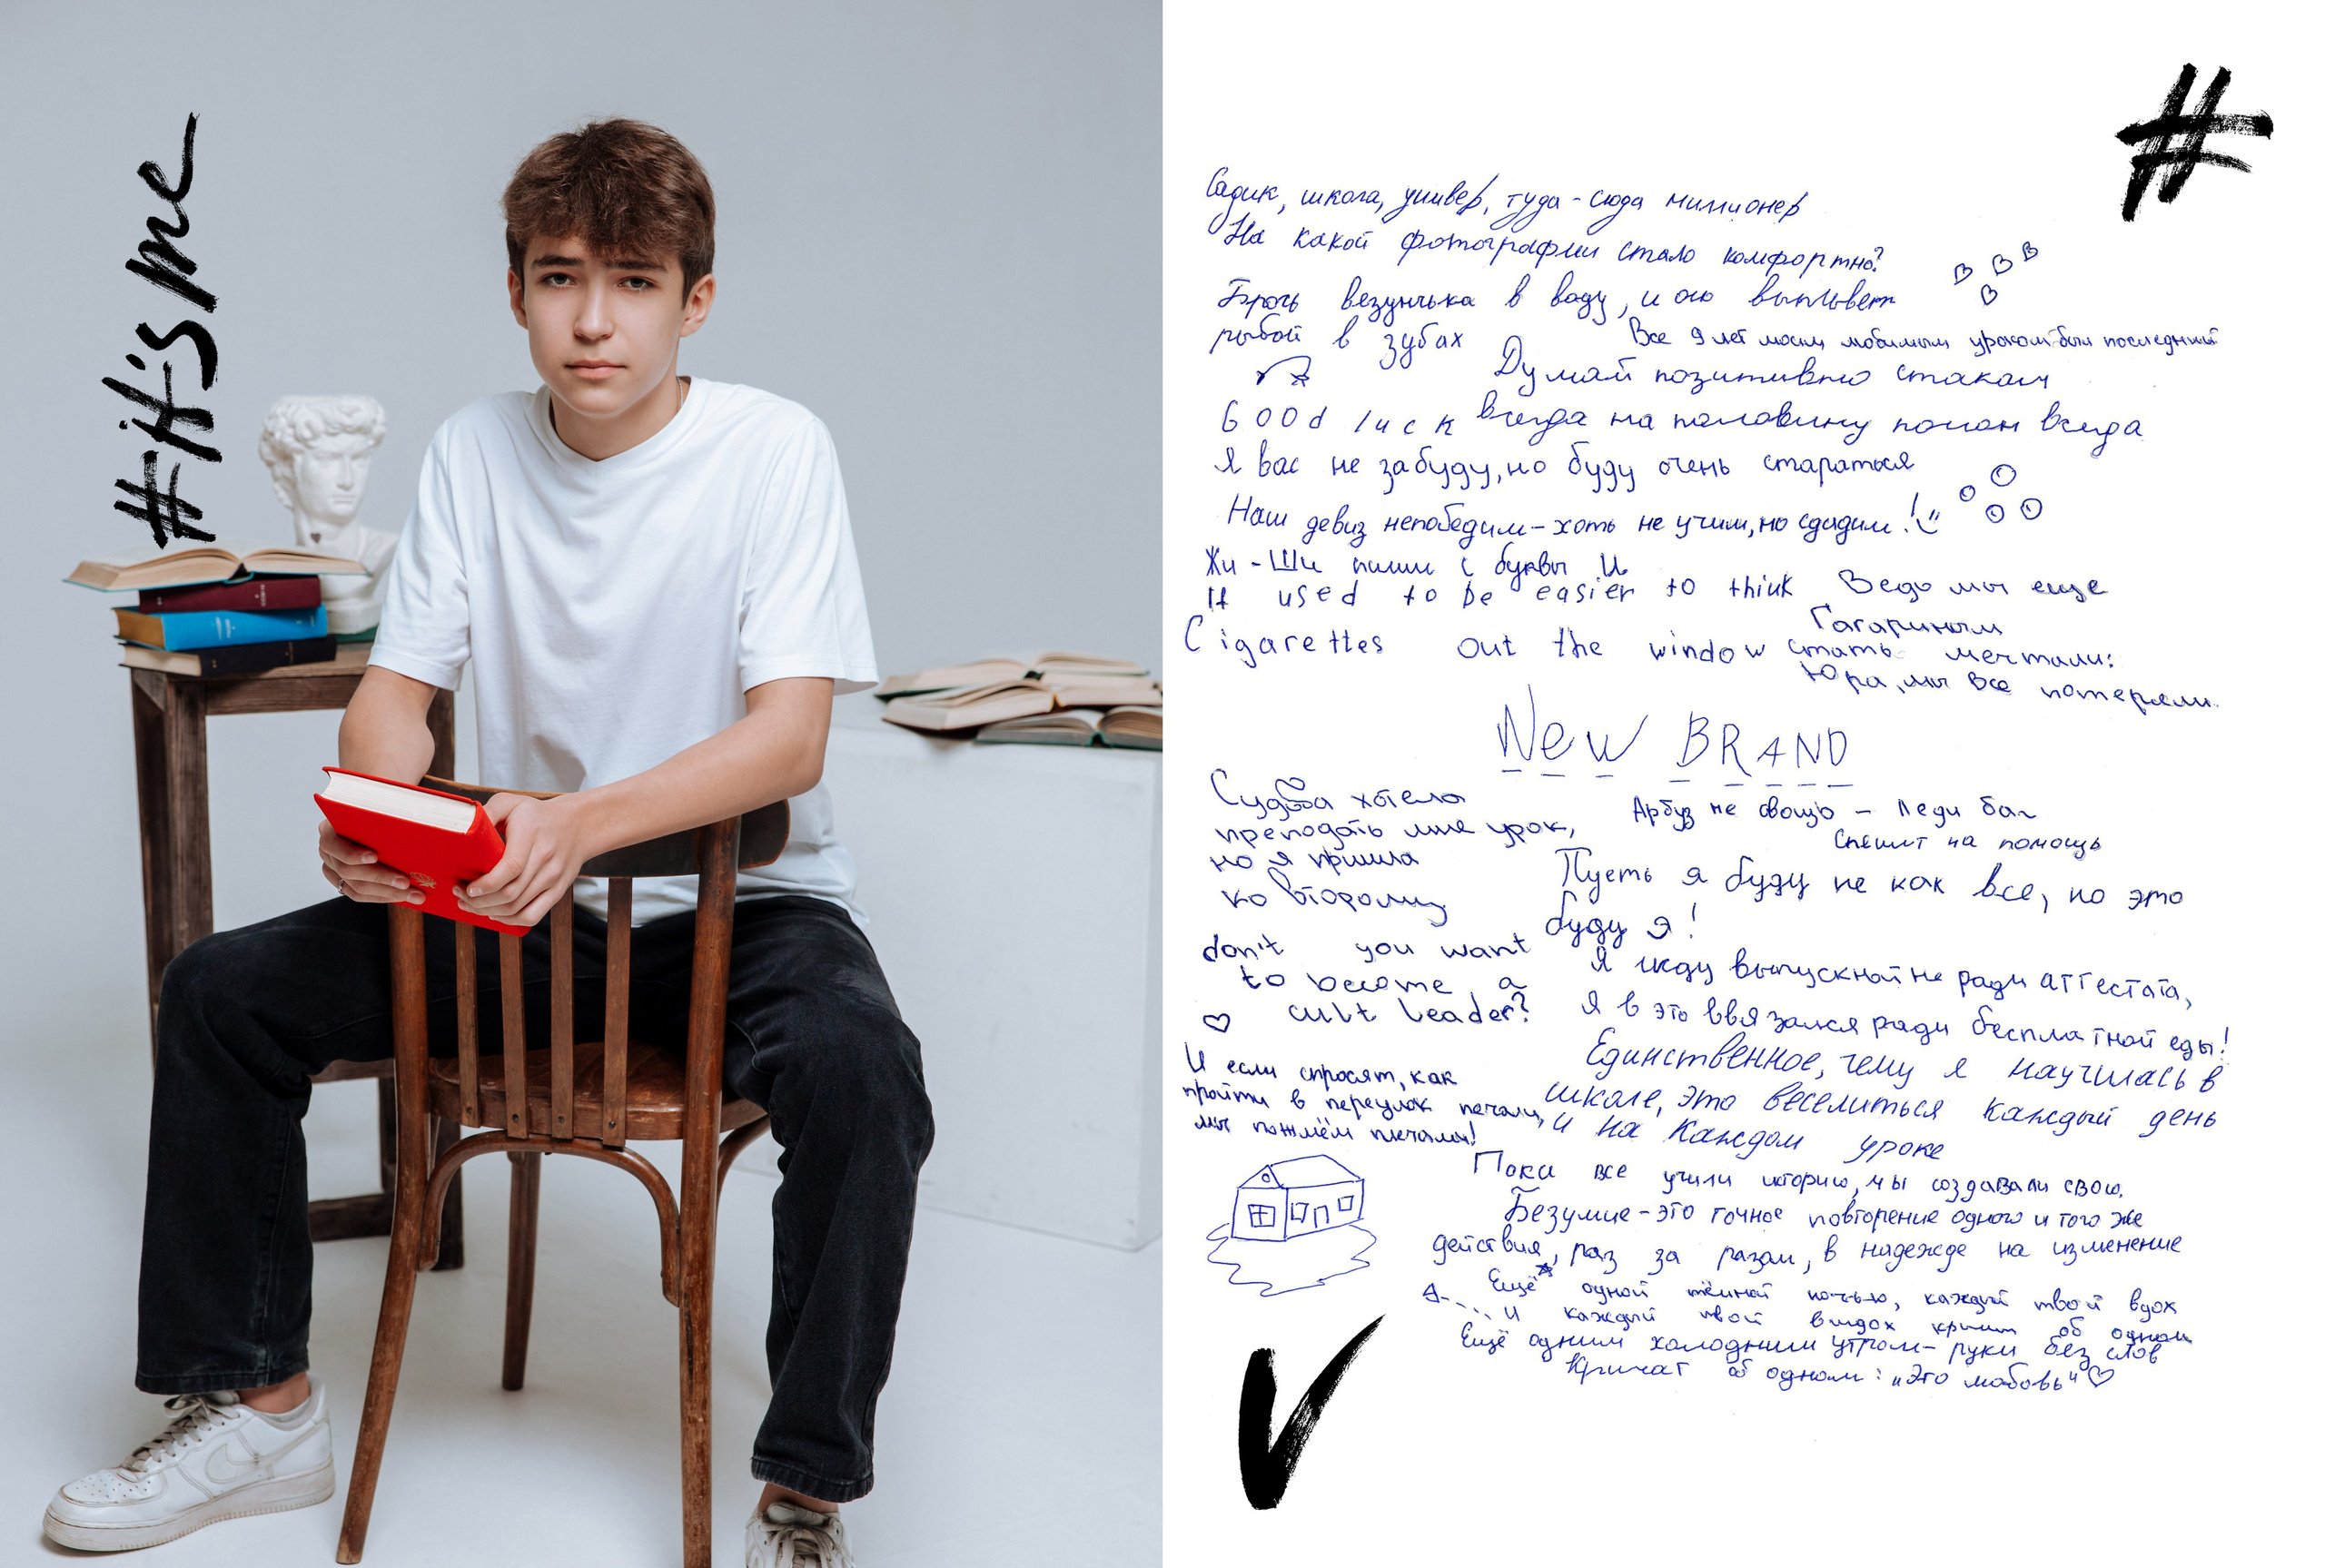 #it's me
#
Садик, школа, универ, туда-сюда миллионер
На какой фотографии стало комфортно?
Брось везунчика в воду, и он выплывет
рыбой в зубах
Все 9 лет моим любимым уроком был последний
Думай позитивно стакан
всегда на половину полон всегда
Good luck
Я вас не забуду, но буду очень стараться
Наш девиз непобедим - хоть не учим, но сдадим!
Жи-Ши пиши с буквы И
It used to be easier to think
Cigarettes out the window
Ведь мы еще
Гагариным
стать мечтали:
Юра, мы все потеряли.
New BRAND
Судьба хотела
преподать мне урок,
но я пришла
ко второму
Арбуз не овощь - Леди баг
спешит на помощь
Пусть я буду не как все, но это
буду я!
don't you want
to become a
cult leader?
Я жду выпускной не ради аттестата,
Я в это ввязался ради бесплатной еды!
Единственное, чему я научилась в
школе, это веселиться каждый день
и на каждом уроке
И если спросят, как
пройти в переулок печали,
мы пожмём плечами!
Пока все учили историю, мы создавали свою.
Безумие - это точное повторение одного и того же
действия, раз за разом, в надежде на изменение
Ещё одной тёмной ночью, каждый твой вдох
и каждый твой выдох кричит об одном
Ещё одним холодным утром - руки без слов
Кричат об одном: "Это любовь"